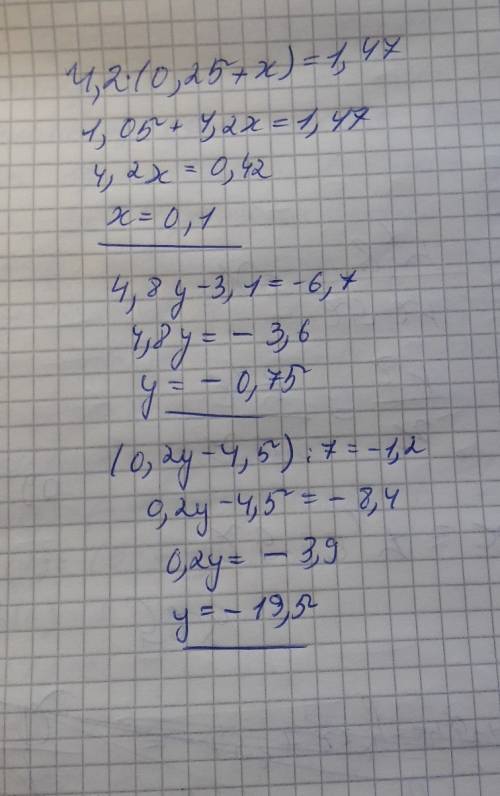 4,2·(0,25+x)=1,47
1,05+4,2x=1,47
4,2x=0,42
x=0,1
4,8y-3,1=-6,7
4,8y=-3,6
y=-0,75
(0,2y-4,5):7=-1,2
0,2y-4,5=-8,4
0,2y=-3,9
y=-19,5